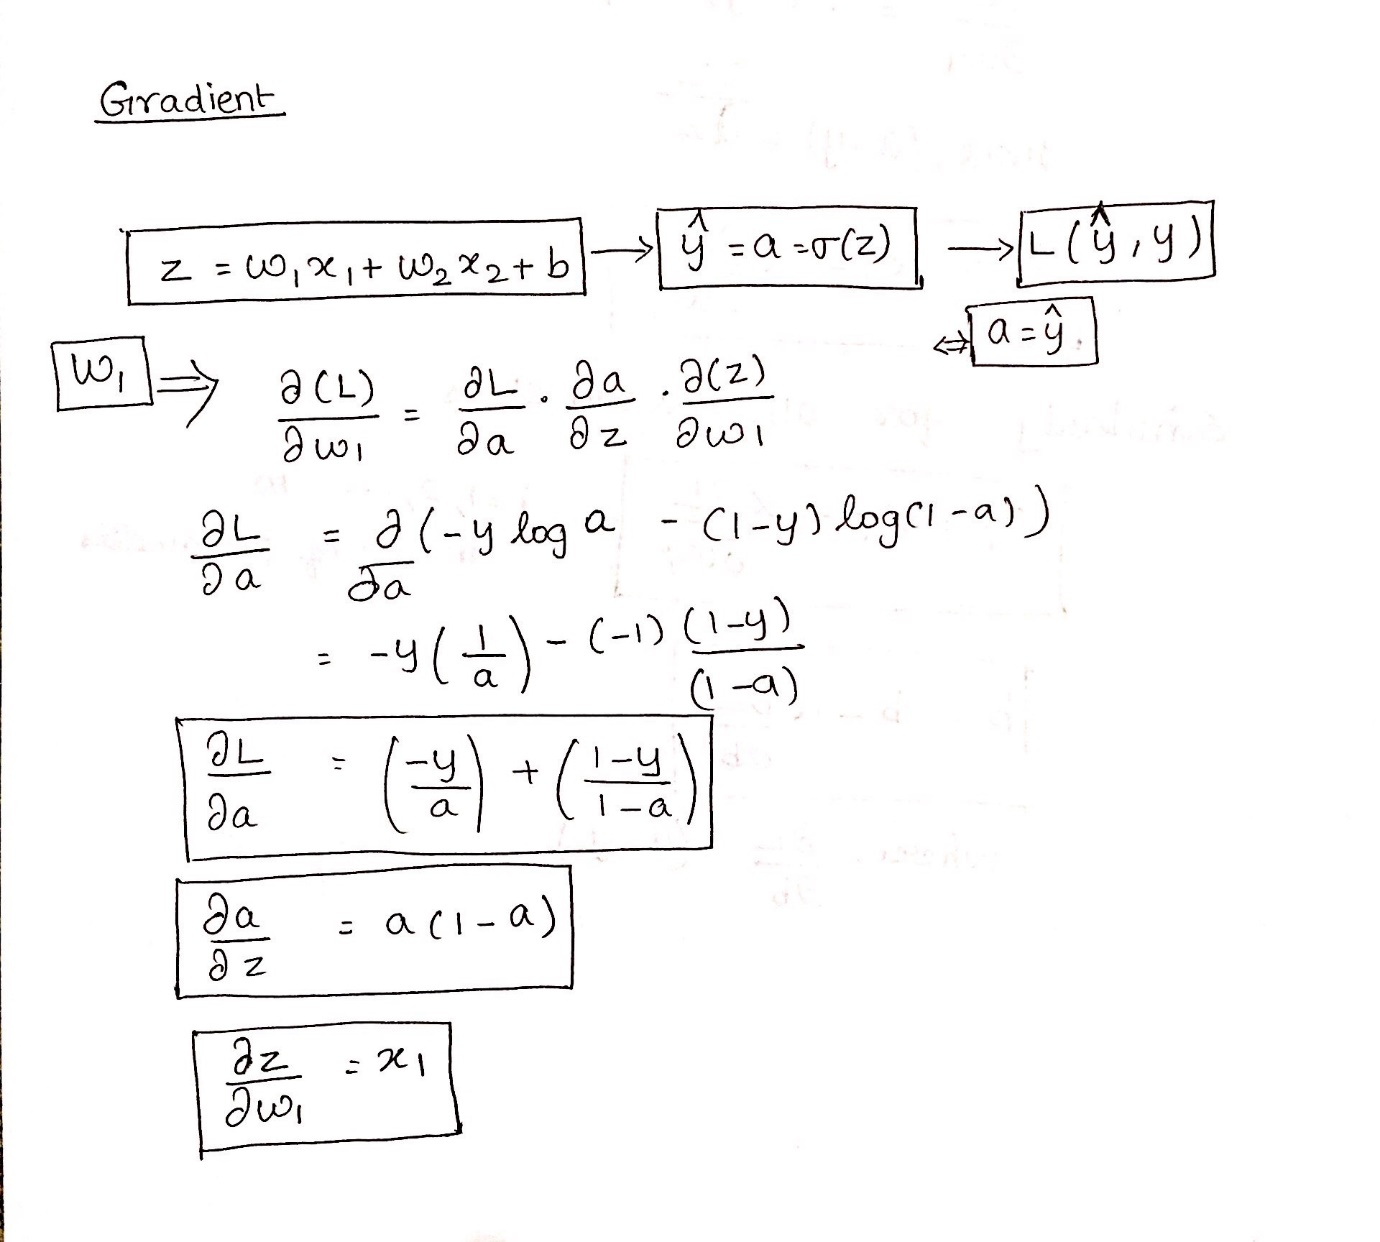 Gradient
z = w₁x₁ + w₂x₂ + b → ŷ = a = σ(z) → L(ŷ, y)
⇔ a = ŷ
w₁ ⇒ ∂(L)/∂w₁ = ∂L/∂a · ∂a/∂z · ∂(z)/∂w₁
∂L/∂a = ∂/∂a (-y log a - (1-y) log(1-a))
= -y(1/a) - (-1) (1-y)/(1-a)
∂L/∂a = (-y/a) + (1-y/1-a)
∂a/∂z = a(1-a)
∂z/∂w₁ = x₁